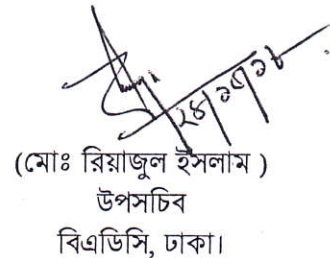 (মোঃ রিয়াজুল ইসলাম )
উপসচিব
বিএডিসি, ঢাকা।